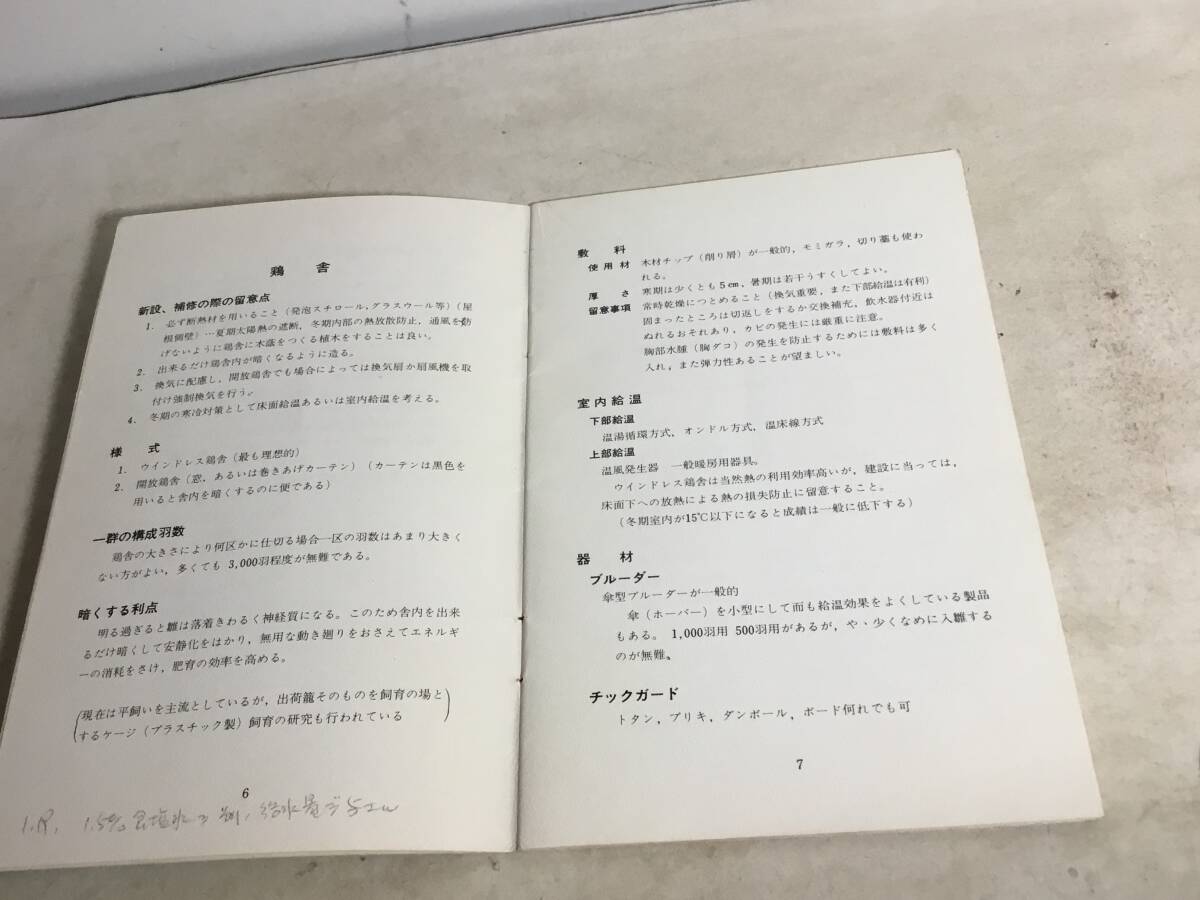 鶏舎
新設、補修の際の留意点
1. 必ず断熱材を用いること（発泡スチロール,グラスウール等）（屋
根側壁）…夏期太陽熱の遮断，冬期内部の熱放散防止，通風を防
げないように鶏舎に木蔭をつくる植木をすることは良い。
2. 出来るだけ鶏舎内が暗くなるように造る。
3. 換気に配慮し，開放鶏舎でも場合によっては換気扇か扇風機を取
付け強制換気を行う。
4. 冬期の寒冷対策として床面給温あるいは室内給温を考える。
様式
1. ウインドレス鶏舎（最も理想的）
2. 開放鶏舎（窓，あるいは巻きあげカーテン）（カーテンは黒色を
用いると舎内を暗くするのに便である）
一群の構成羽数
鶏舎の大きさにより何区かに仕切る場合一区の羽数はあまり大きく
ない方がよい，多くても 3,000羽程度が無難である。
暗くする利点
明る過ぎると雛は落着きわるく神経質になる。このため舎内を出来
るだけ暗くして安静化をはかり，無用な動き廻りをおさえてエネルギ
ーの消耗をさけ，肥育の効率を高める。
（現在は平飼いを主流としているが，出荷籠そのものを飼育の場と
するケージ（プラスチック製）飼育の研究も行われている）
6
1.5% 食塩水
敷料
使用材 木材チップ（削り屑）が一般的，モミガラ，切り藁も使わ
れる。
厚さ 寒期は少くとも5㎝，暑期は若干うすくしてよい。
留意事項 常時乾燥につとめること（換気重要，また下部給温は有利）
固まったところは切返しをするか交換補充，飲水器付近は
ぬれるおそれあり，カビの発生には厳重に注意。
胸部水腫（胸ダコ）の発生を防止するためには敷料は多く
入れ，また弾力性あることが望ましい。
室内給温
下部給温
温湯循環方式，オンドル方式，温床線方式
上部給温
温風発生器 一般暖房用器具。
ウインドレス鶏舎は当然熱の利用効率高いが，建設に当っては，
床面下への放熱による熱の損失防止に留意すること。
（冬期室内が15℃以下になると成績は一般に低下する）
器材
ブルーダー
傘型ブルーダーが一般的
傘（ホーバー）を小型にして而も給温効果をよくしている製品
もある。 1,000羽用 500羽用があるが，や丶少くなめに入雛する
のが無難。
チックガード
トタン，ブリキ，ダンボール，ボード何れでも可
7